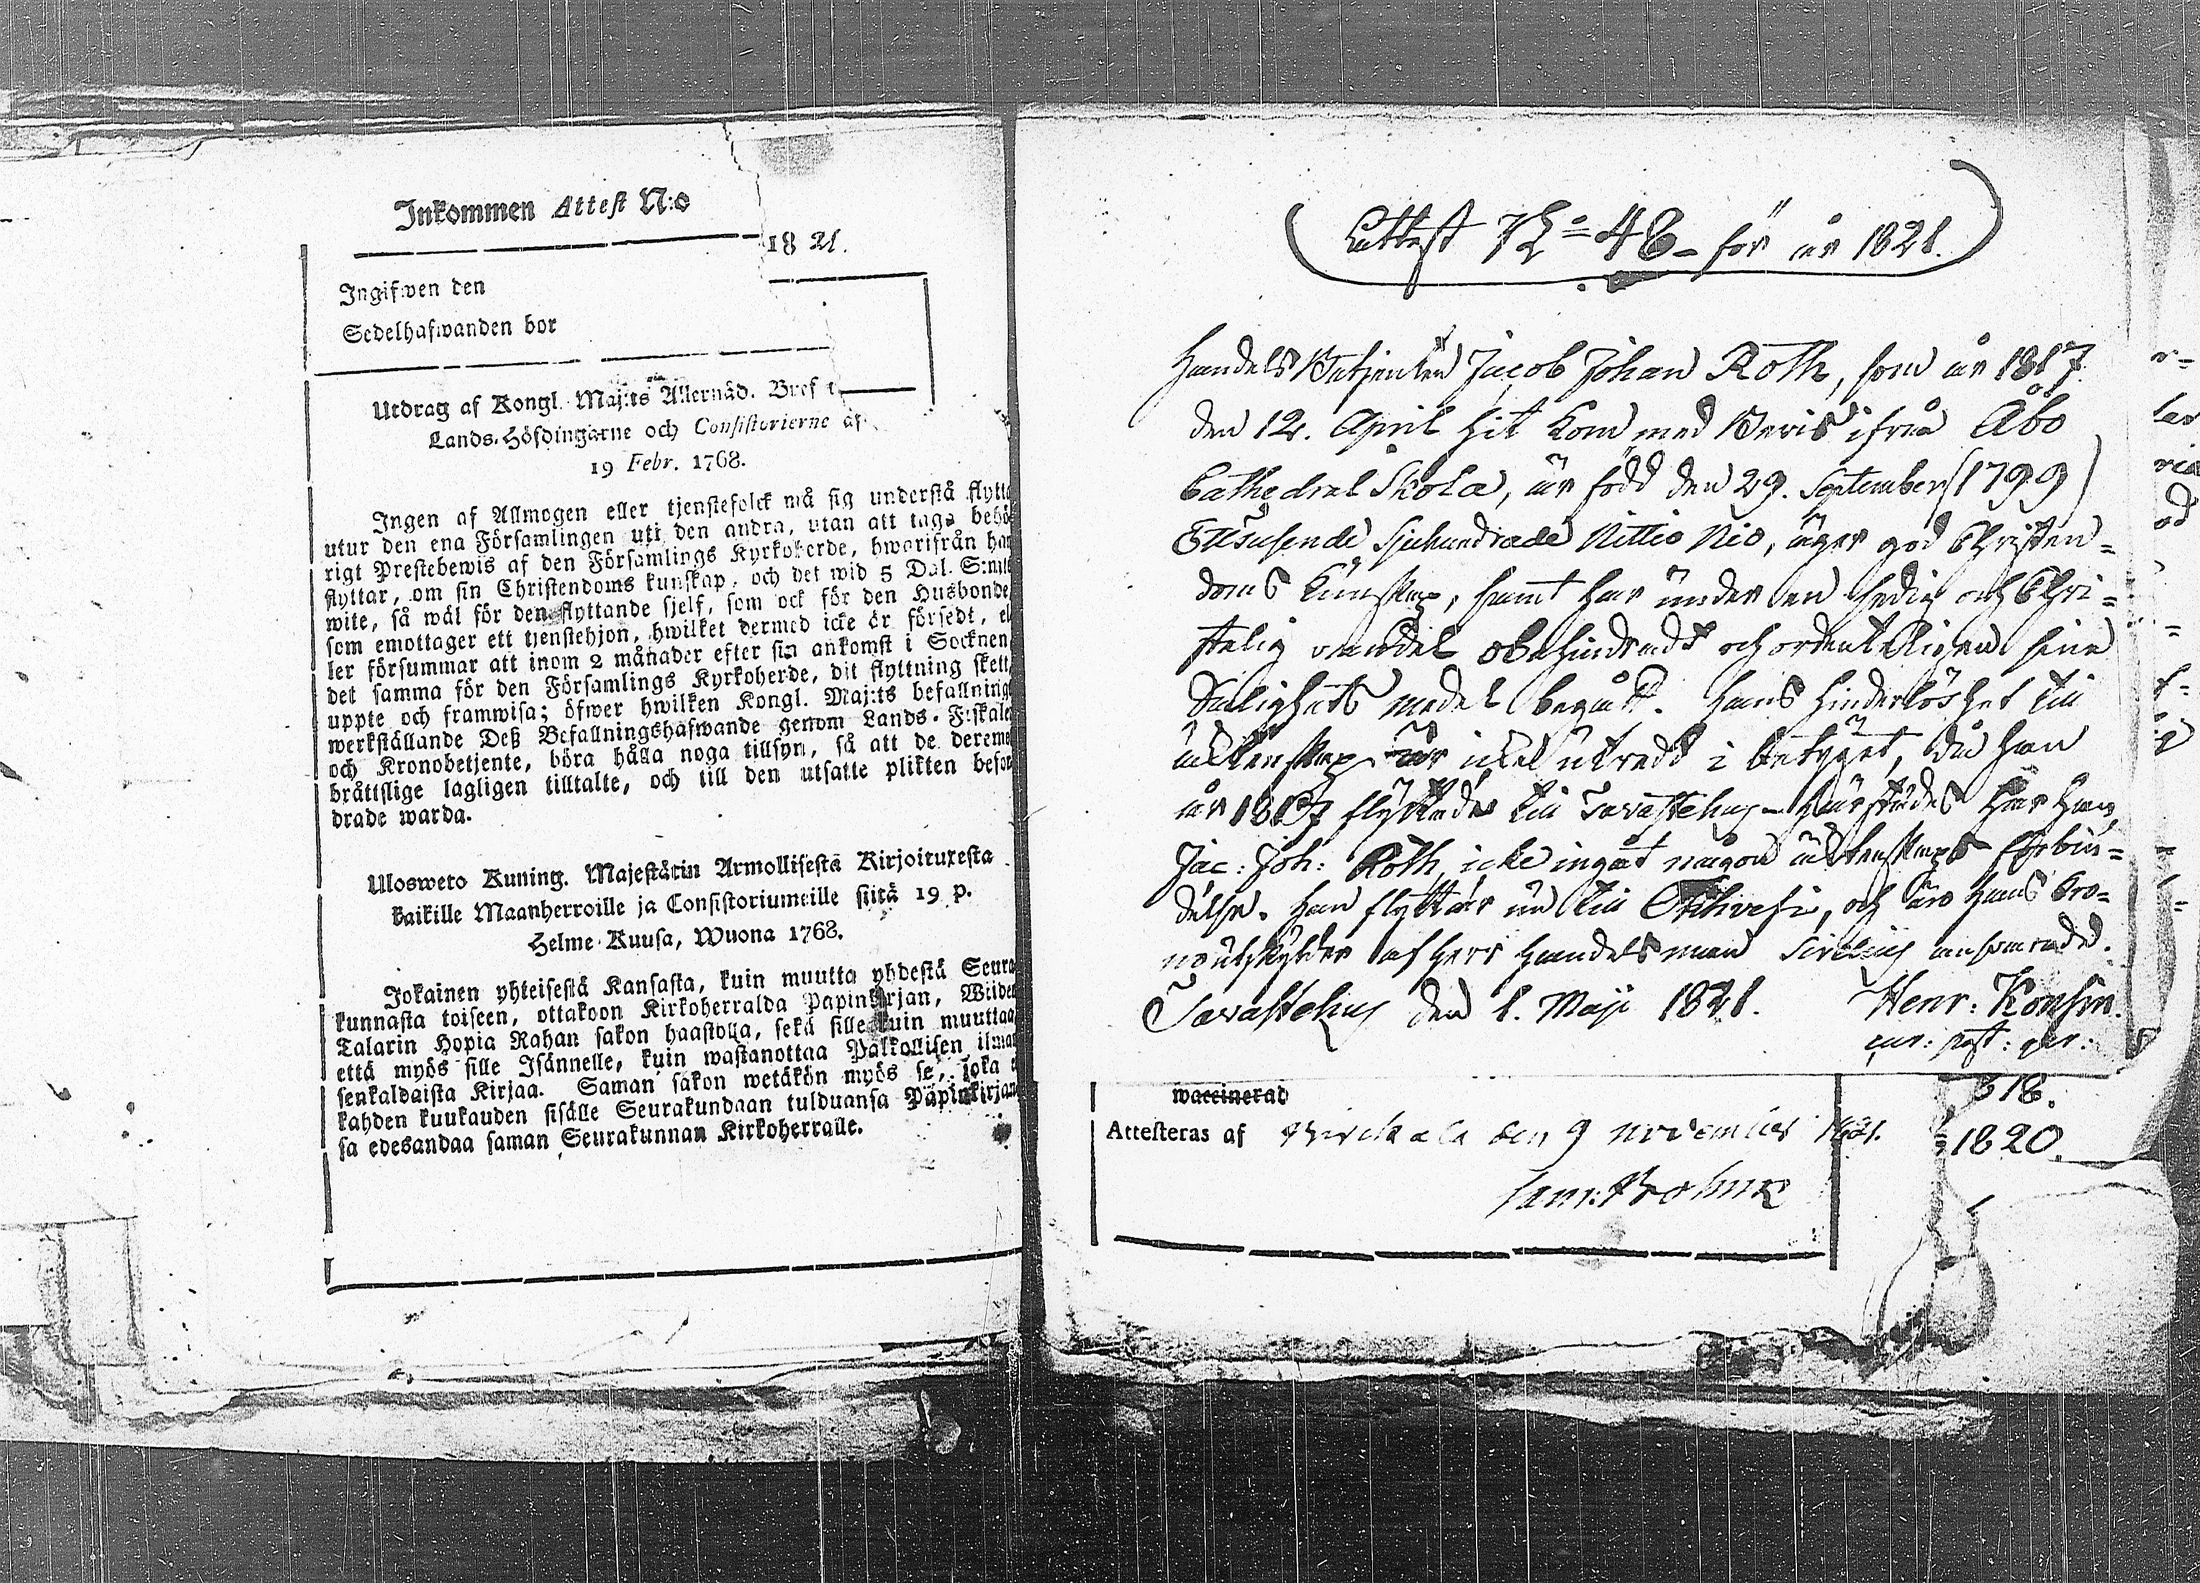 Inkommen Attest N:o
18 21.
Ingifwen den
Sedelhafwanden bor
Utdrag af Kongl. Maj:ts Allernåd. Bref t
Lands-Höfdingarne och Consistorierne af
19 Febr. 1768.
Ingen af Allmogen eller tjenstefolck må sig understå flytta
utur den ena Församlingen uti den andra, utan att taga behö
rigt Prestebewis af den Församlings Kyrkoherde, hwarifrån han
flyttar, om sin Christendoms kunskap, och det wid 5 Dal. S:mts
wite, så wäl för den flyttande sjelf, som ock för den Husbonde
som emottager ett tjenstehjon, hwilket dermed icke är försedt, el
ler försummar att inom 2 månader efter sin ankomst i Socknen
det samma för den Församlings Kyrkoherde, dit flyttning skett
uppte och framwisa; öfwer hwilken Kongl. Maj:ts befallning
werkställande Deß Befallningshafwande genom Lands-Fiskale
och Kronobetjente, böra hålla noga tillsyn, så att de dereme
bråttslige lagligen tilltalte, och till den utsatte plikten befor
drade warda.
Ulosweto Kuning. Majestätin Armollisesta Kirjoituxesta
kaikille Maanherroille ja Consistoriumeille siitä 19 p.
Helme-Kuusa, Wuona 1768.
Jokainen yhteisestä Kansasta, kuin muutta yhdestä Seura
kunnasta toiseen, ottakoon Kirkoherralda Papinkirjan, Wiiden
Talarin Hopia Rahan sakon haastolla, sekä sille kuin muuttaa
että myös sille Isännelle, kuin wastanottaa Palkollisen ilman
senkaldaista Kirjaa. Saman sakon wetäkön myös se, joka e
kahden kuukauden sisälle Seurakundaan tulduansa Papinkirjan
sa edesandaa saman Seurakunnan Kirkoherralle.
Attest No 48 för år 1821.
Handels Betjenten Jacob Johan Roth, som år 1817
den 12. April hit kom med Bevis ifrån Åbo
Cathedral Skola, är född den 29. September (1799)
Ettusende Sjuhundrade Nittio Nio, äger god Christen=
doms Kunskap, samt har under en sedig och Chri=
stelig vandel obehindradt och ordenteligen sine
Salighets medel begått. Hans hinderlöshet till
äktenskap är icke utredt i betyget, då han
år 1817 flyttade till Tavastehus - härstädes har han,
Jac: Joh: Roth icke ingått någon äktenskaps förbin=
delse. Han flyttar nu till Orihvesi, och äro hans Kro=
noutskylder af Herr Handelsman Sirelius ansvarade.
Tavastehus den 1. Maji 1821. Henr: Konsin.
cur: past: par:
waccinerad
318.
Attesteras af Birckala den 9 November 1821.
1820.